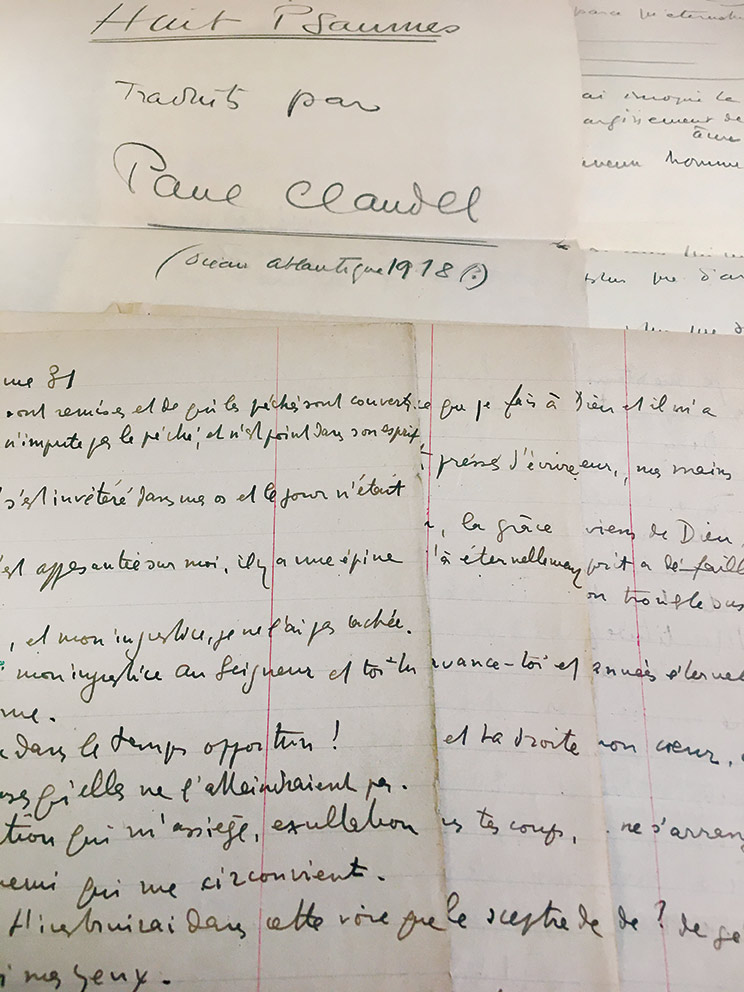 Huit Psaumes
Traduits par
Paul Claudel
(Océan atlantique 1918 (?)
ai invoqué le
argissement de
âme
homme
me 31
sont remises et de qui les péchés sont couverts
n'impute pas le péché, et n'est point dans son esprit
s'est invétéré dans mes os et le jour n'était
est appesantie sur moi, il y a une épine
, et mon injustice, je ne l'ai pas cachée.
mon injustice au Seigneur et toi tu
me.
dans le temps opportun !
qu'elles ne l'atteindraient pas.
tion qui m'assiège, exultation
nemi qui me circonvient.
t'instruirai dans cette voie que
i mes yeux.
ce que je fais à
pressé d'écrire
, la grâce
à éternellement
avance-toi et
et ta droite
tes coups,
le sceptre de
Dieu et il m'a
eur, mes mains
viens de Dieu,
prit a défailli
années éternel
mon cœur,
ne s'arran
de ? de